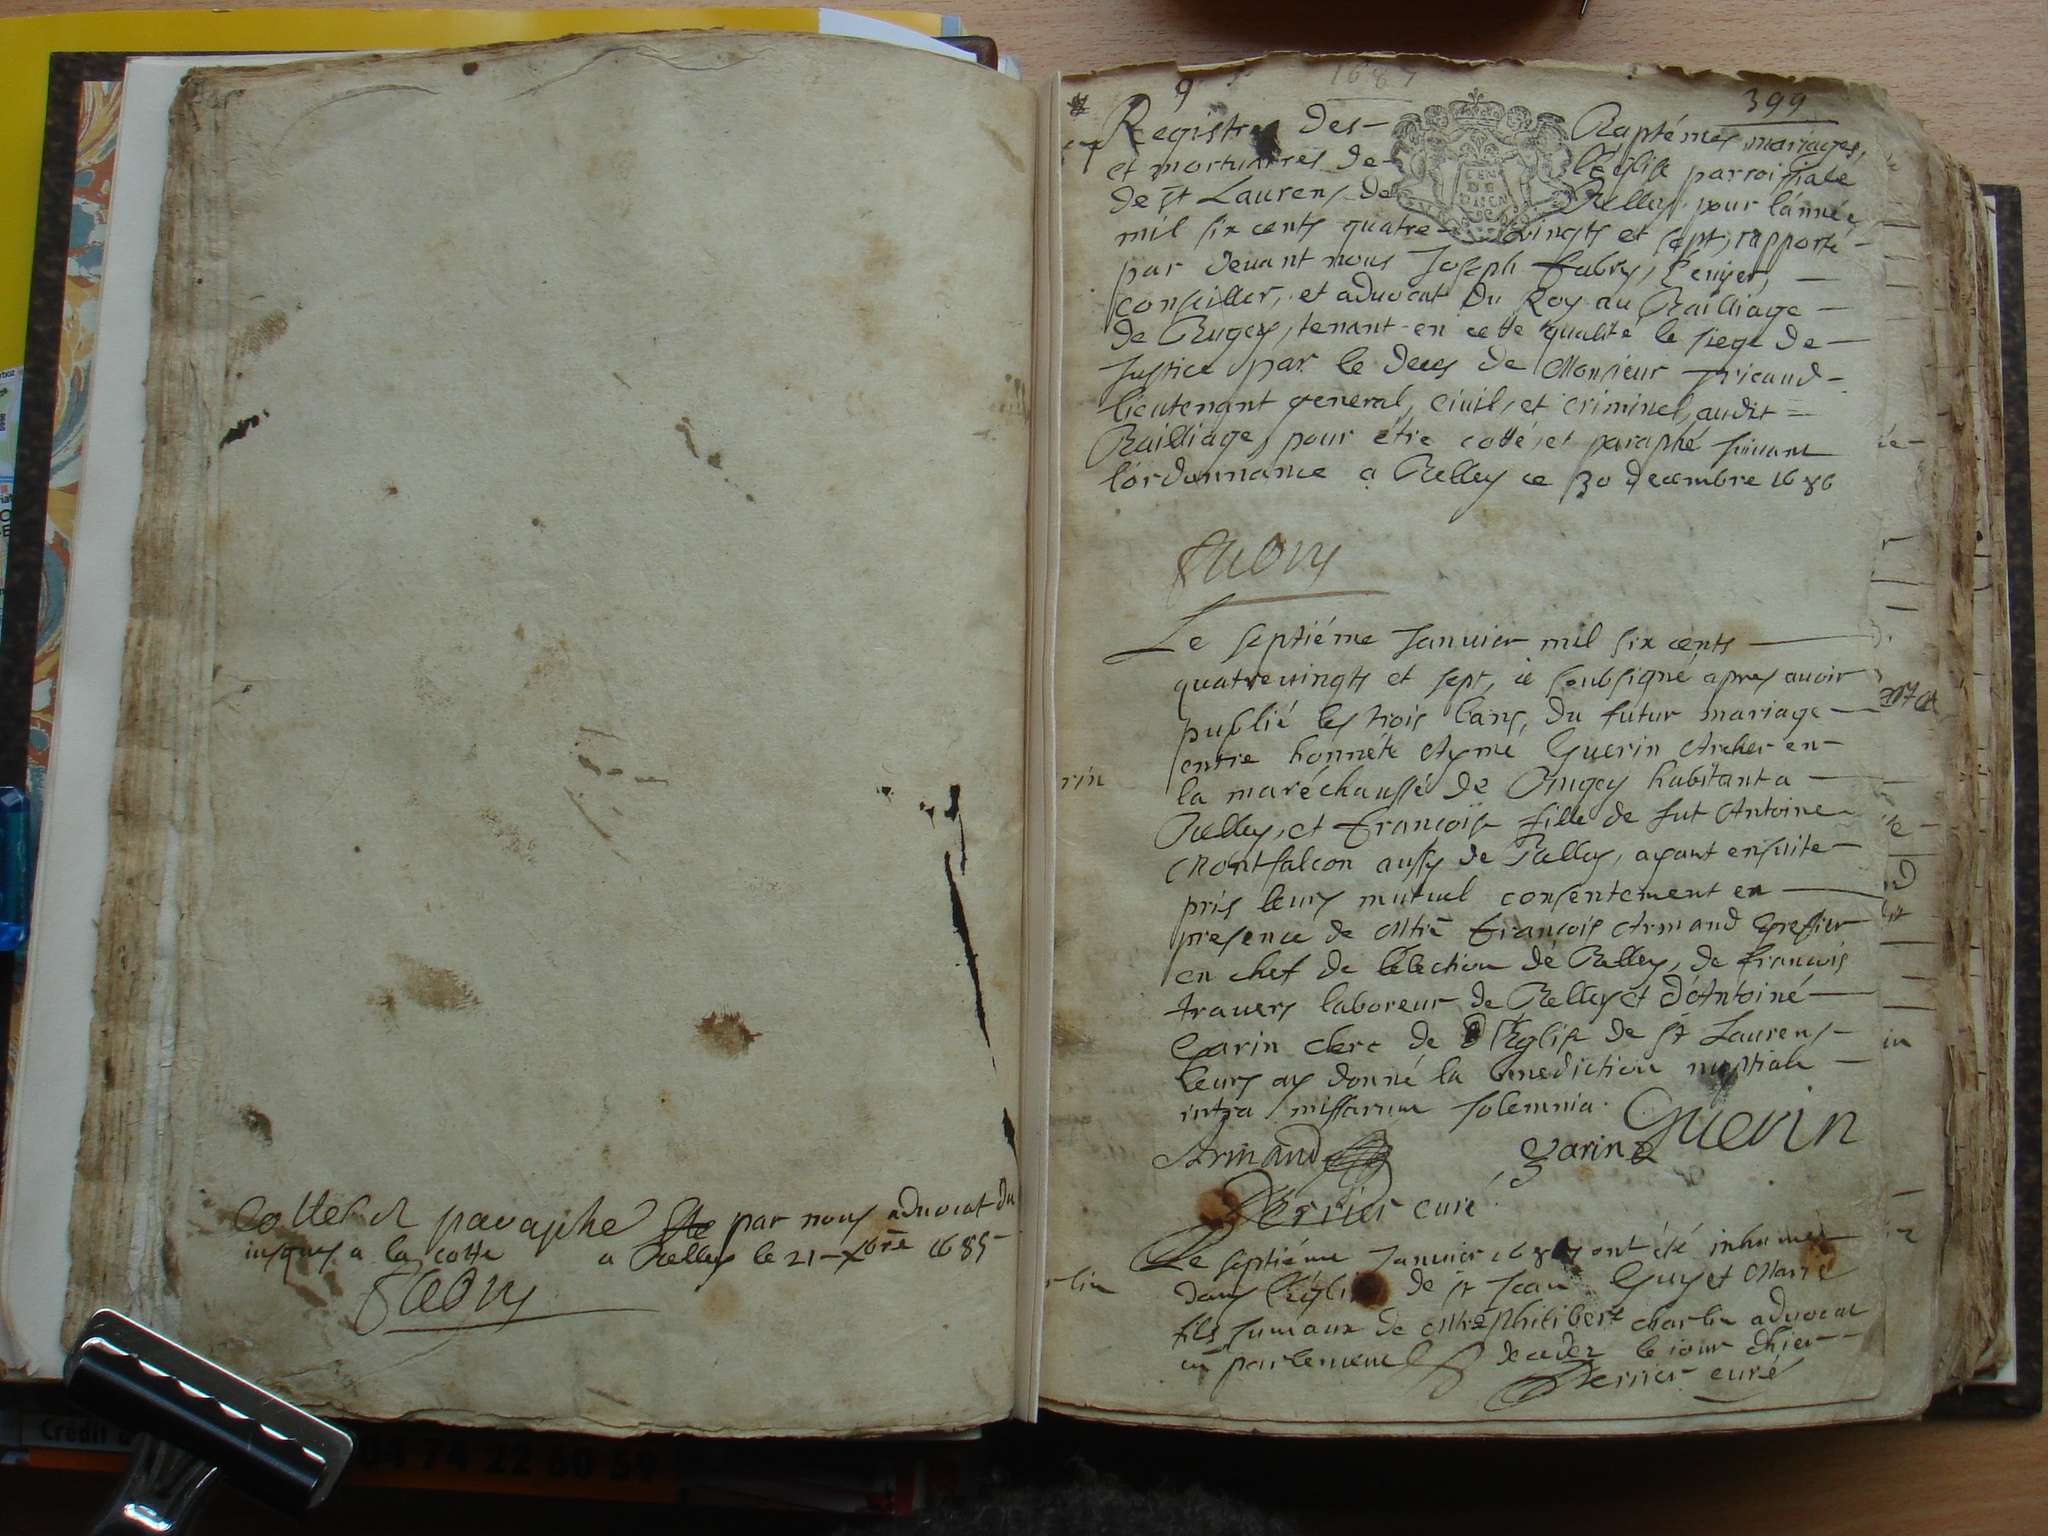 Cotté et paraphé par nous advocat du
iusques a la cotte a Belley le 21 xbre 1685
Fabry
1687
399
Registre des Baptémes mariages,
et mortuaires de l'église parroissiale
de st Laurens de Belley pour l'année
mil six cents quatre vingts et sept, rapporté
par devant nous Joseph Fabry, Ecuyer,
conseiller, et advocat du Roy au Bailliage
de Bugey, tenant en cette qualité le siege de
Justice par le deces de Monsieur Tricaud
lieutenant general, civil, et criminel, audit
Bailliage, pour étre cotté, et paraphé suivant
l'ordonnance a Belley ce 30 decembre 1686
Fabry
Le septiéme Januier mil six cents
quatrevingts et sept, ie soubsigné apres auoir
publié les trois bans, du futur mariage
entre honnéte Aymé Guerin Archer en
la maréchaussé de Bugey habitant a
Belley, et francoise fille de fut Antoine
Montfalcon aussy de Belley, ayant ensuite
pris leurs mutuel consentement en
presence de Mtre francois Armand Greffier
en chef de l'élection de Belley, de francois
travers laboreur de Belley et d'Antoine
Garin clerc de l'Eglise de st Laurens
leurs ay donné la benediction nuptiale
intra missarum solemnia.
Armand Garin Guerin
Perrier curé
Le septiéme Januier 1687 ont été inhumés
dans l'église de st Jean Guy et Marie
fils Jumaux de Mtre Philibert charlin advocat
en parlement decedez le iour d'hier
Perrier curé